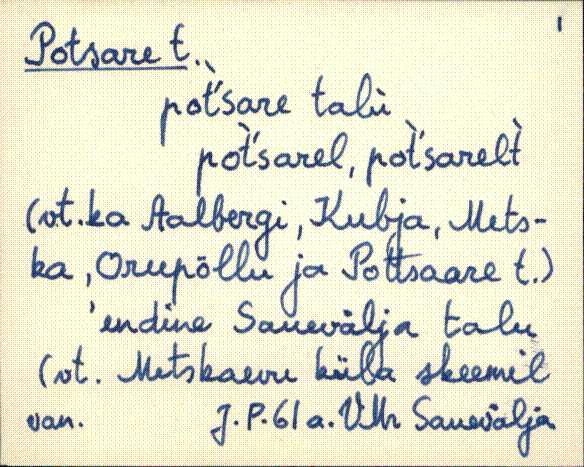 1
Potsare t.
pot̀'sare talù
pot̀'sarel, pot̀'sarelt̀
(vt.ka Aalbergi, Kubja, Mets-
ka, Orupõllu ja Pottsaare t.)
'endine Sauevälja talu
(vt. Metskaevu küla skeemil
van. J.P.61 a. VMr Sauevälja